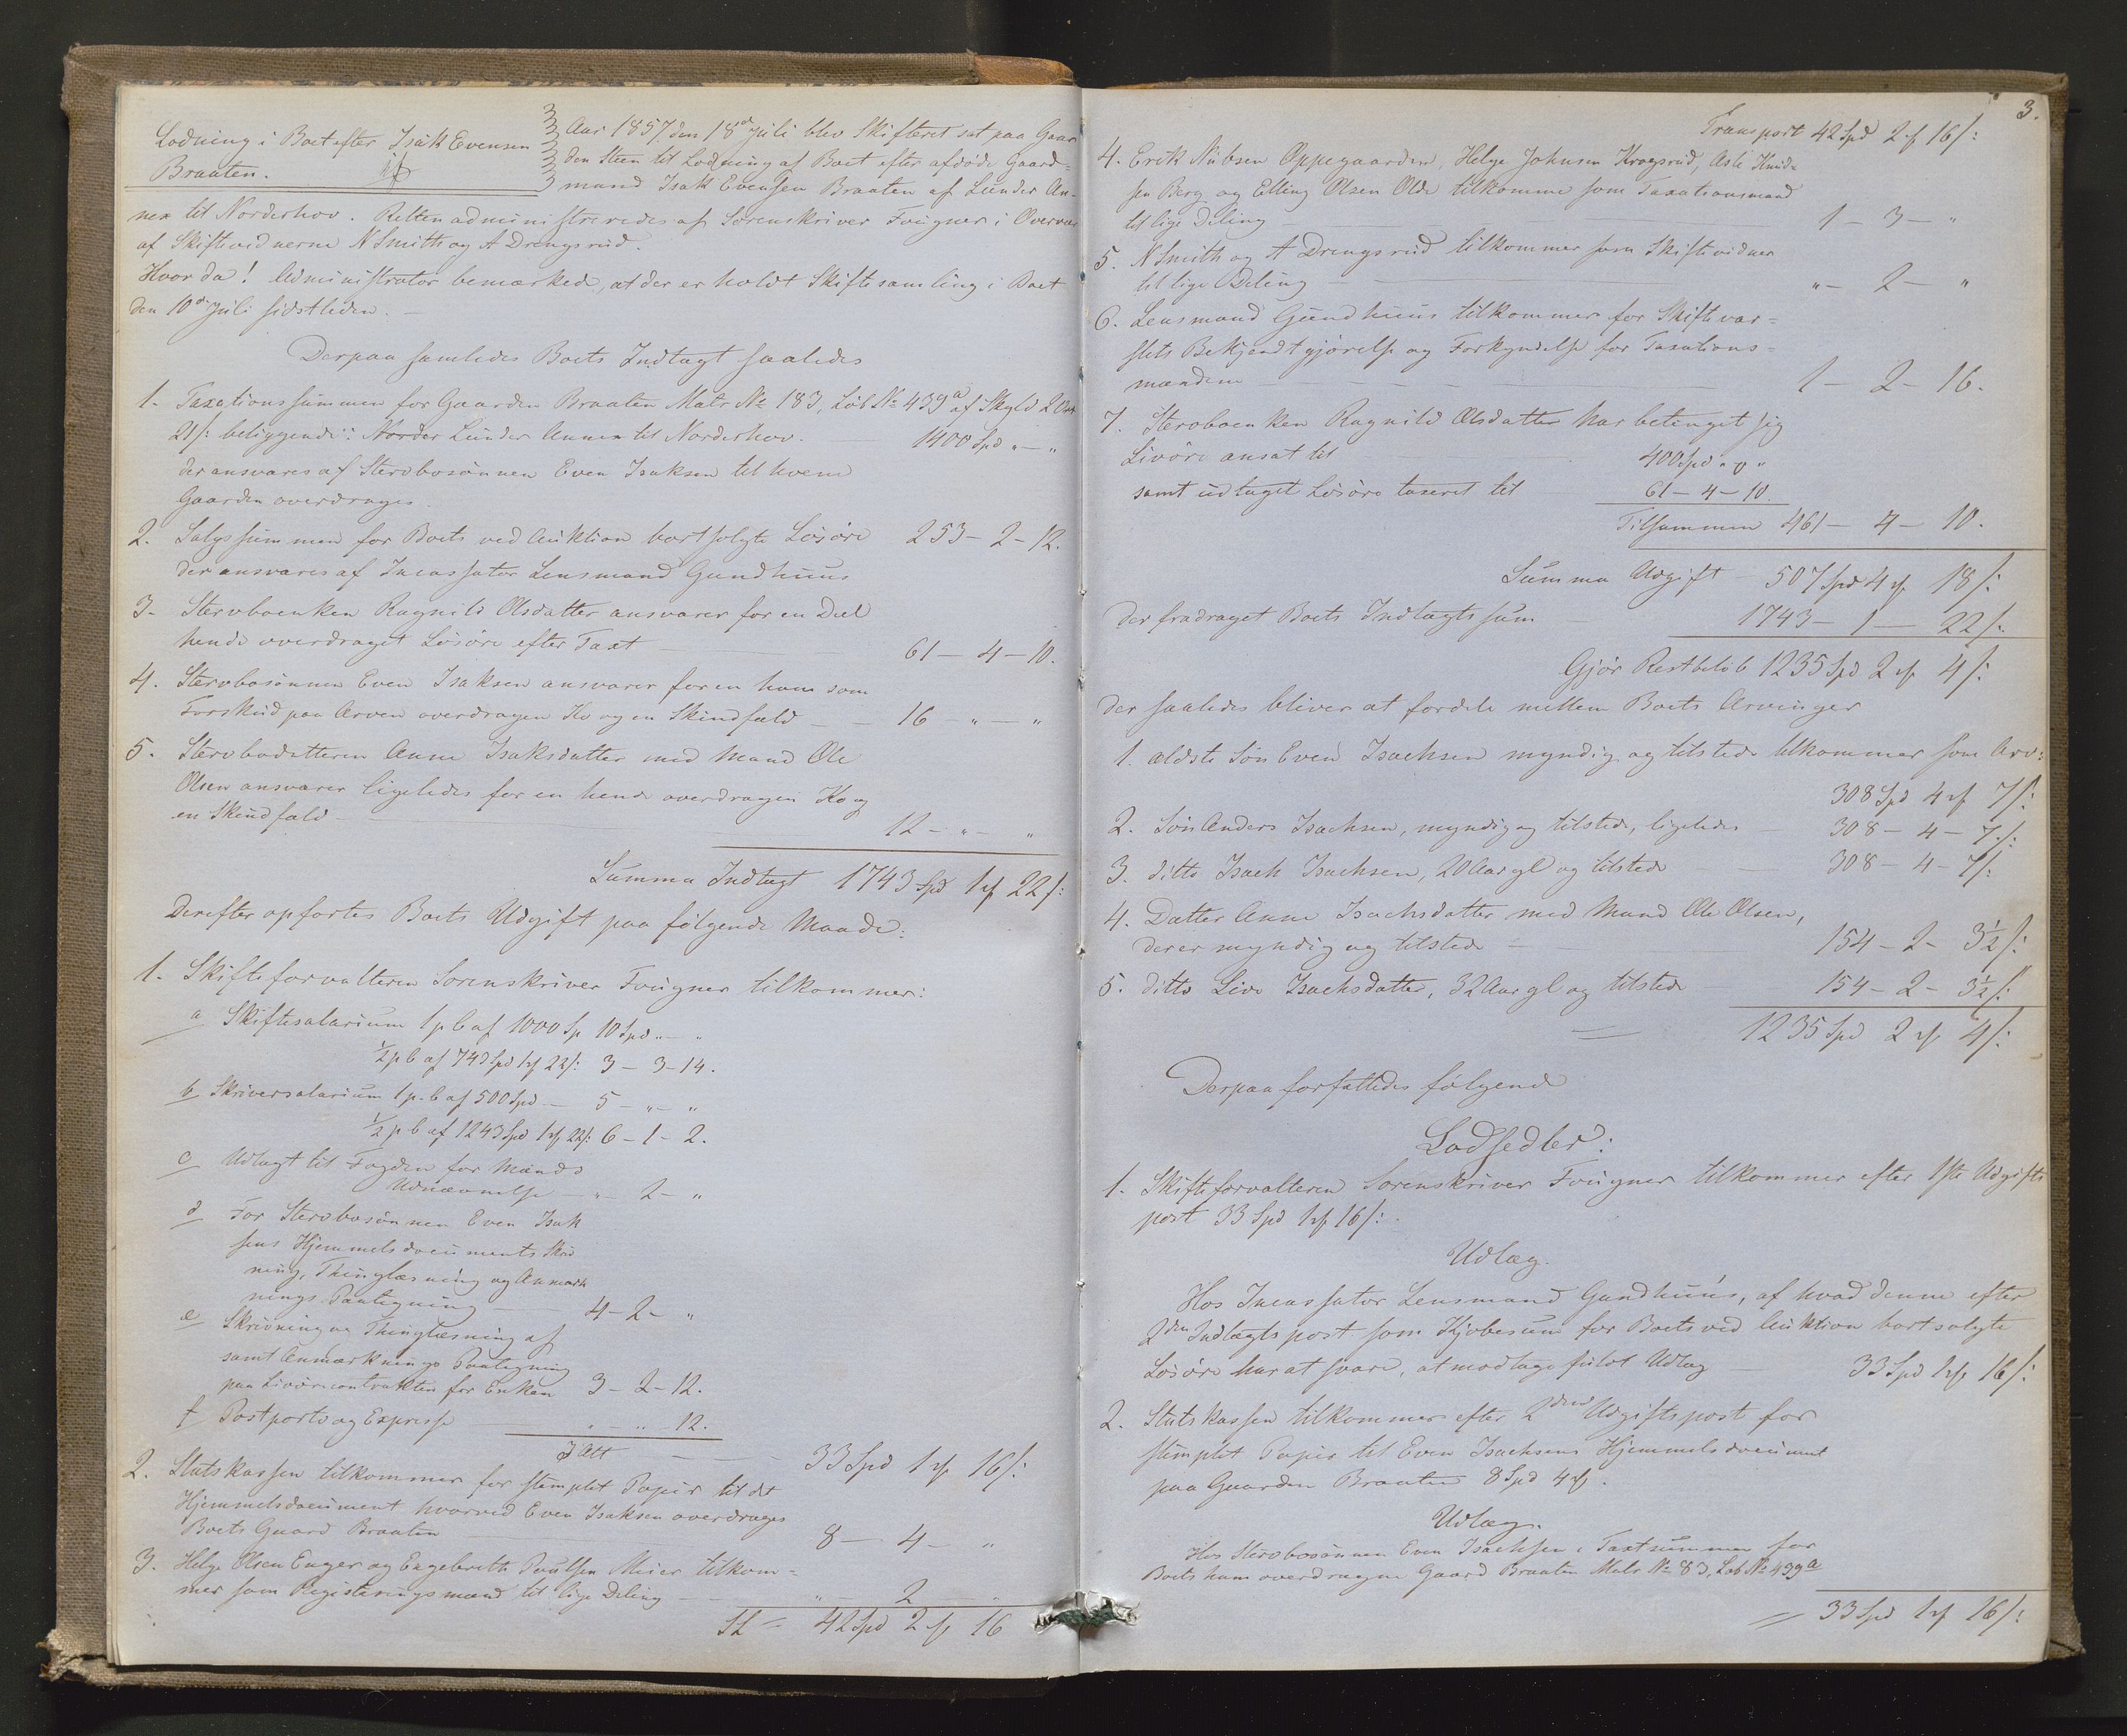 Lodning i Boet efter Isak Evensen
Braaten.
Aar 1857 den 18de Juli blev Skifteret sat paa Gaar
den Steen til Lodning af Boet efter afdøde Gaard=
mand Isak Evensen Braaten af Lunder An-
nex til Norderhov. Retten administreredes af Sorenskriver Fougner i Overvær
af Skiftevidnerne N Smith og A Drengsrud.
Hvor da! Administrator bemærkede, at der er holdt Skiftesamling i Boet
den 10de Juli sidstleden. —
Derpaa samledes Boets Indtægt saaledes
1. Taxationssummen for Gaarden Braaten Matr No 183, Løb No 439a af Skyld 2 Ort
21 /: beliggende i Lunder Annex til Norderhov. 1400 Spd „ — „
der ansvares af Stervbosønnen Even Isaksen til hvem
Gaarden overdrages
2. Salgssummen for Boets ved Auktion bortsolgte Løsøre 253 — 2 — 12.
der ansvares af Incassator Lensmand Gundhuus
3. Stervboenken Ragnild Olsdatter ansvarer for en Deel
hende overdraget Løsøre efter Taxt — 61 — 4 — 10.
4. Stervbosønnen Even Isaksen ansvarer for en ham som
Forskud paa Arven overdragen Ko og en Skindfæld — 16 — „ — „
5. Stervbodatteren Anne Isaksdatter med Mand Ole
Olsen ansvarer ligeledes for en hende overdragen Ko og
en Skindfæld — 12 — „ — „
Summa Indtægt 1743 Spd 1 ꝛ 22 /:
Derefter opførtes Boets Udgift paa følgende Maade:
1. Skifteforvalteren Sorenskriver Fougner tilkommer:
a Skiftesalarium 1 p C af 1000 Sp 10 Spd „ — „
½ p C af 743 Spd 1 ꝛ 22 /: 3 — 3 — 14.
b Skriversalarium 1 p. C af 500 Spd — 5 — „ — „
½ p C af 1243 Spd 1 ꝛ 22 /: 6 — 1 — 2.
c Udlagt til Fogden for Mænds
Udnævnelse — „ — 2 — „
d For Stervbosønnen Even Isak
sens Hjemmelsdocuments Skriv
ning, Thinglæsning og Anmærk
nings Paategning — 4 — 2 — „
e Skrivning og Thinglæsning af
samt Anmærknings Paategning
paa Livørecontrakten for Enken 3 — 2 — 12.
f Postporto og Expresse „ — „ — 12.
I Alt — 33 Spd 1 ꝛ 16 /:
2. Statskassen tilkommer for stemplet Papir til det
Hjemmelsdocument hvorved Even Isaksen overdrages
Boets Gaard Braaten — 8 — 4 — „
3. Helge Olsen Enger og Engebreth Poulsen Moier tilkom=
mer som Registeringsmænd til lige Deling — „ — 2 — „
St = 42 Spd 2 ꝛ 16
3.
Transport 42 Spd 2 ꝛ 16 /:
4. Erik Nubsen Oppegaarden, Helge Johnsen Krogsrud, Asle Knud=
sen Berg og Elling Olsen Olde tilkomme som Taxationsmænd
til lige Deling — 1 — 3 — „
5. N Smith og A Drengsrud tilkommer som Skiftevidner
til lige Deling — „ — 2 — „
6. Lensmand Gundhuus tilkommer for Skiftevar=
slets Bekjendtgjørelse og Forkyndelse for Taxations=
mændene — 1 — 2 — 16.
7. Stervboenken Ragnild Olsdatter har betinget sig
Livøre ansat til 400 Spd „ o „
samt udtaget Løsøre taxeret til 61 — 4 — 10.
Tilsammen 461 — 4 — 10.
Summa Udgift — 507 Spd 4 ꝛ 18 /:
Der fradraget Boets Indtægtssum 1743 — 1 — 22 /:
Gjør Restbeløb 1235 Spd 2 ꝛ 4 /:
der saaledes bliver at fordele mellem Boets Arvinger
1. ældste Søn Even Isachsen myndig og tilstede tilkommer som Arv:
308 Spd 4 ꝛ 7 /:
2. Søn Anders Isachsen, myndig og tilstede, ligeledes — 308 — 4 — 7 /:
3. ditto Isach Isachsen, 20 Aar gl og tilstede — 308 — 4 — 7 /:
4. Datter Anne Isachsdatter med Mand Ole Olsen,
der er myndig og tilstede — 154 — 2 — 3½ /:
5. ditto Live Isachsdatter, 32 Aar gl og tilstede 154 — 2 — 3½ /:
= 1235 Spd 2 ꝛ 4 /:
Derpaa forfattedes følgende
Lodsedler:
1. Skifteforvalteren Sorenskriver Fougner tilkommer efter 1ste Udgifts
post 33 Spd 1 ꝛ 16 /:
Udlæg.
Hos Incassator Lensmand Gundhuus, af hvad denne efter
2den Indtægtspost som Kjøbesum for Boets ved Auktion bortsolgte
Løsøre har at svare, at modtage fuldt Udlæg 33 Spd 1 ꝛ 16 /:
2. Statskassen tilkommer efter 2den Udgiftspost for
stemplet Papir til Even Isachsens Hjemmelsdocument
paa Gaarden Braaten 8 Spd 4 ꝛ.
Udlæg.
Hos Stervbosønnen Even Isachsen i Taxtsummen for
Boets ham overdragne Gaard Braaten Matr No 83, Løb No 439a
= 33 Spd 1 ꝛ 16 /: